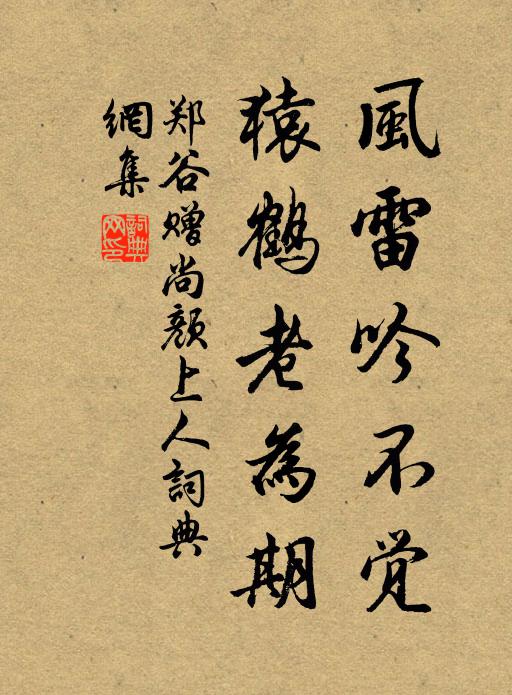 風雷吟不觉
猿鶴老為期
郑谷赠尚颜上人詞典
網集
詞典
网印